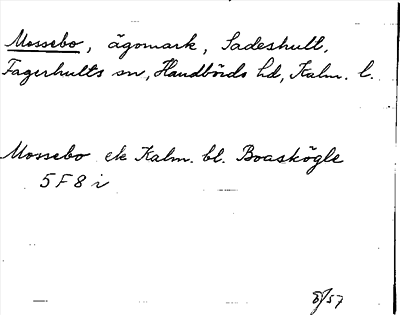 Mossebo, ägomark, Sadeshult,
Fagerhults sn, Handbörds hd, Kalm. l.
Mossebo ek Kalm. bl. Boaskögle
5 F 8 i
8/57